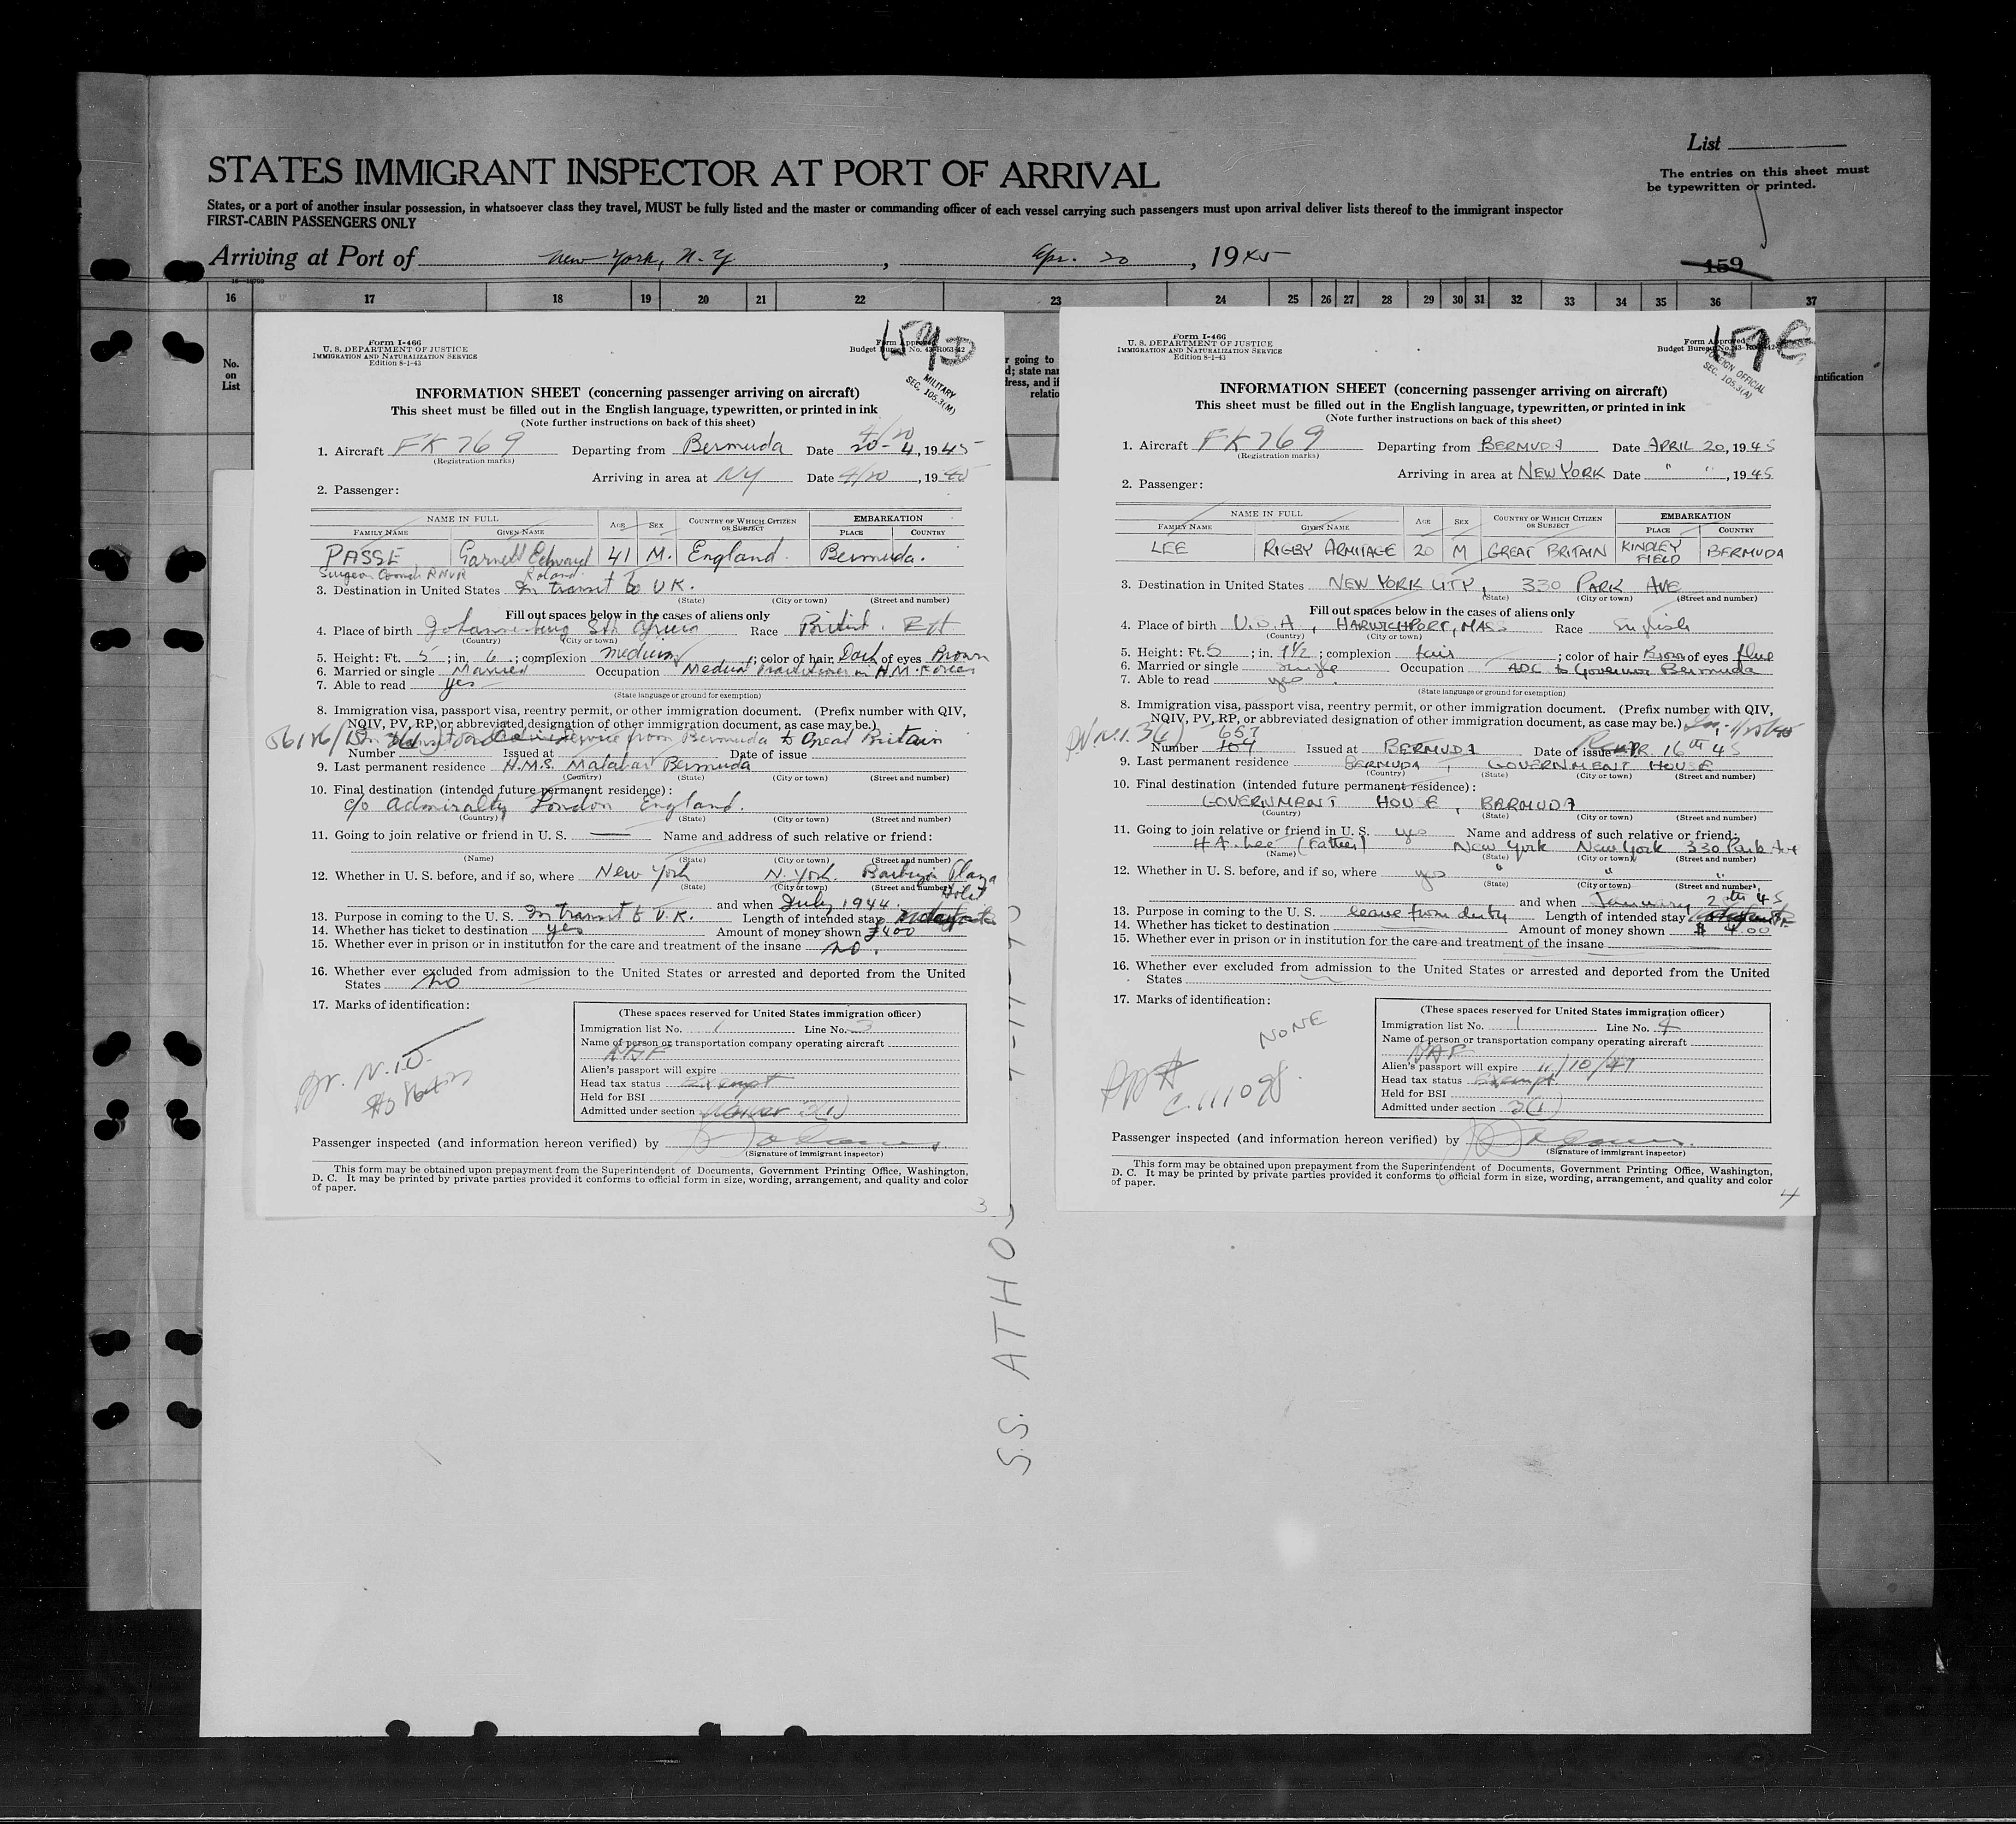 List
The entries on this sheet must
be typewritten or printed.
STATES IMMIGRANT INSPECTOR AT PORT OF ARRIVAL
States, or a port of another insular possession, in whatsoever class they travel, MUST be fully listed and the master or commanding officer of each vessel carrying such passengers must upon arrival deliver lists thereof to the immigrant inspector
FIRST-CABIN PASSENGERS ONLY
Arriving at Port of New York, N. Y , Apr. 20 , 1945
159
16 17 18 19 20 21 22 23 24 25 26 27 28 29 30 31 32 33 34 35 36 37
No.
on
List
159D
Form I-466
U. S. DEPARTMENT OF JUSTICE
IMMIGRATION AND NATURALIZATION SERVICE
Edition 8-1-43
Form Approved
Budget Bureau No. 43-R063-42
MILITARY
SEC. 105.3(M)
INFORMATION SHEET (concerning passenger arriving on aircraft)
This sheet must be filled out in the English language, typewritten, or printed in ink
(Note further instructions on back of this sheet)
4/20
1. Aircraft FK 769 Departing from Bermuda Date 20-4, 1945
(Registration marks)
Arriving in area at NY Date 4/20, 1945
2. Passenger:
NAME IN FULL AGE SEX COUNTRY OF WHICH CITIZEN OR SUBJECT EMBARKATION
FAMILY NAME GIVEN NAME PLACE COUNTRY
PASSE Garnett Edward 41 M. England. Bermuda.
Surgeon Comdr RNVR Roland
3. Destination in United States In transit to UK.
(State) (City or town) (Street and number)
Fill out spaces below in the cases of aliens only
4. Place of birth Johannesburg Sth Africa Race British.
(Country) (City or town)
5. Height: Ft. 5 ; in. 6 ; complexion medium ; color of hair Dark of eyes Brown
6. Married or single Married Occupation Medical Practitioner in H.M. Forces
7. Able to read yes
(State language or ground for exemption)
8. Immigration visa, passport visa, reentry permit, or other immigration document. (Prefix number with QIV,
NQIV, PV, RP, or abbreviated designation of other immigration document, as case may be.)
service from Bermuda to Great Britain
Number Issued at Date of issue
9. Last permanent residence H.M.S. Malabar Bermuda
(Country) (State) (City or town) (Street and number)
10. Final destination (intended future permanent residence):
c/o Admiralty London England.
(Country) (State) (City or town) (Street and number)
11. Going to join relative or friend in U. S. — Name and address of such relative or friend:
(Name) (State) (City or town) (Street and number)
12. Whether in U. S. before, and if so, where New York N. York. Barbizon Plaza
(State) (City or town) (Street and number) Hotel
and when July 1944.
13. Purpose in coming to the U. S. In transit to U.K. Length of intended stay
14. Whether has ticket to destination yes Amount of money shown $400
15. Whether ever in prison or in institution for the care and treatment of the insane no.
16. Whether ever excluded from admission to the United States or arrested and deported from the United
States no
17. Marks of identification:
(These spaces reserved for United States immigration officer)
Immigration list No. 1 Line No. 3
Name of person or transportation company operating aircraft
Alien's passport will expire
Head tax status Exempt
Held for BSI
Admitted under section 3(1)
Passenger inspected (and information hereon verified) by
(Signature of immigrant inspector)
This form may be obtained upon prepayment from the Superintendent of Documents, Government Printing Office, Washington,
D. C. It may be printed by private parties provided it conforms to official form in size, wording, arrangement, and quality and color
of paper.
3
r going to
d; state nam
dress, and if
relatio
S.S. ATHOS
159E
Form I-466
U. S. DEPARTMENT OF JUSTICE
IMMIGRATION AND NATURALIZATION SERVICE
Edition 8-1-43
Form Approved
SEC. 105.3(A)
INFORMATION SHEET (concerning passenger arriving on aircraft)
This sheet must be filled out in the English language, typewritten, or printed in ink
(Note further instructions on back of this sheet)
1. Aircraft FK 769 Departing from BERMUDA Date APRIL 20, 1945
(Registration marks)
Arriving in area at NEW YORK Date " ", 1945
2. Passenger:
NAME IN FULL AGE SEX COUNTRY OF WHICH CITIZEN OR SUBJECT EMBARKATION
FAMILY NAME GIVEN NAME PLACE COUNTRY
LEE RIGBY ARMITAGE 20 M GREAT BRITAIN KINDLEY FIELD BERMUDA
3. Destination in United States NEW YORK CITY, 330 PARK AVE
(State) (City or town) (Street and number)
Fill out spaces below in the cases of aliens only
4. Place of birth U.S.A, HARWICHPORT, MASS Race English
(Country) (City or town)
5. Height: Ft. 5 ; in. 9½ ; complexion fair ; color of hair Brown of eyes blue
6. Married or single single Occupation ADC to Governor Bermuda
7. Able to read yes
(State language or ground for exemption)
8. Immigration visa, passport visa, reentry permit, or other immigration document. (Prefix number with QIV,
NQIV, PV, RP, or abbreviated designation of other immigration document, as case may be.)
657
Number 104 Issued at BERMUDA Date of issue APR. 16th 45
9. Last permanent residence BERMUDA, GOVERNMENT HOUSE
(Country) (State) (City or town) (Street and number)
10. Final destination (intended future permanent residence):
GOVERNMENT HOUSE, BERMUDA
(Country) (State) (City or town) (Street and number)
11. Going to join relative or friend in U. S. yes Name and address of such relative or friend:
H A. Lee (Father) New York New York 330 Park Ave
(Name) (State) (City or town) (Street and number)
12. Whether in U. S. before, and if so, where yes " " "
(State) (City or town) (Street and number)
and when January 2th 45
13. Purpose in coming to the U. S. leave from duty Length of intended stay
14. Whether has ticket to destination Amount of money shown $ 4.00
15. Whether ever in prison or in institution for the care and treatment of the insane
16. Whether ever excluded from admission to the United States or arrested and deported from the United
States
17. Marks of identification:
NONE
PPT #
C.111098.
(These spaces reserved for United States immigration officer)
Immigration list No. 1 Line No. 4
Name of person or transportation company operating aircraft
Alien's passport will expire 11/10/47
Head tax status Exempt
Held for BSI
Admitted under section 3(1)
Passenger inspected (and information hereon verified) by
(Signature of immigrant inspector)
This form may be obtained upon prepayment from the Superintendent of Documents, Government Printing Office, Washington,
D. C. It may be printed by private parties provided it conforms to official form in size, wording, arrangement, and quality and color
of paper.
4
entification